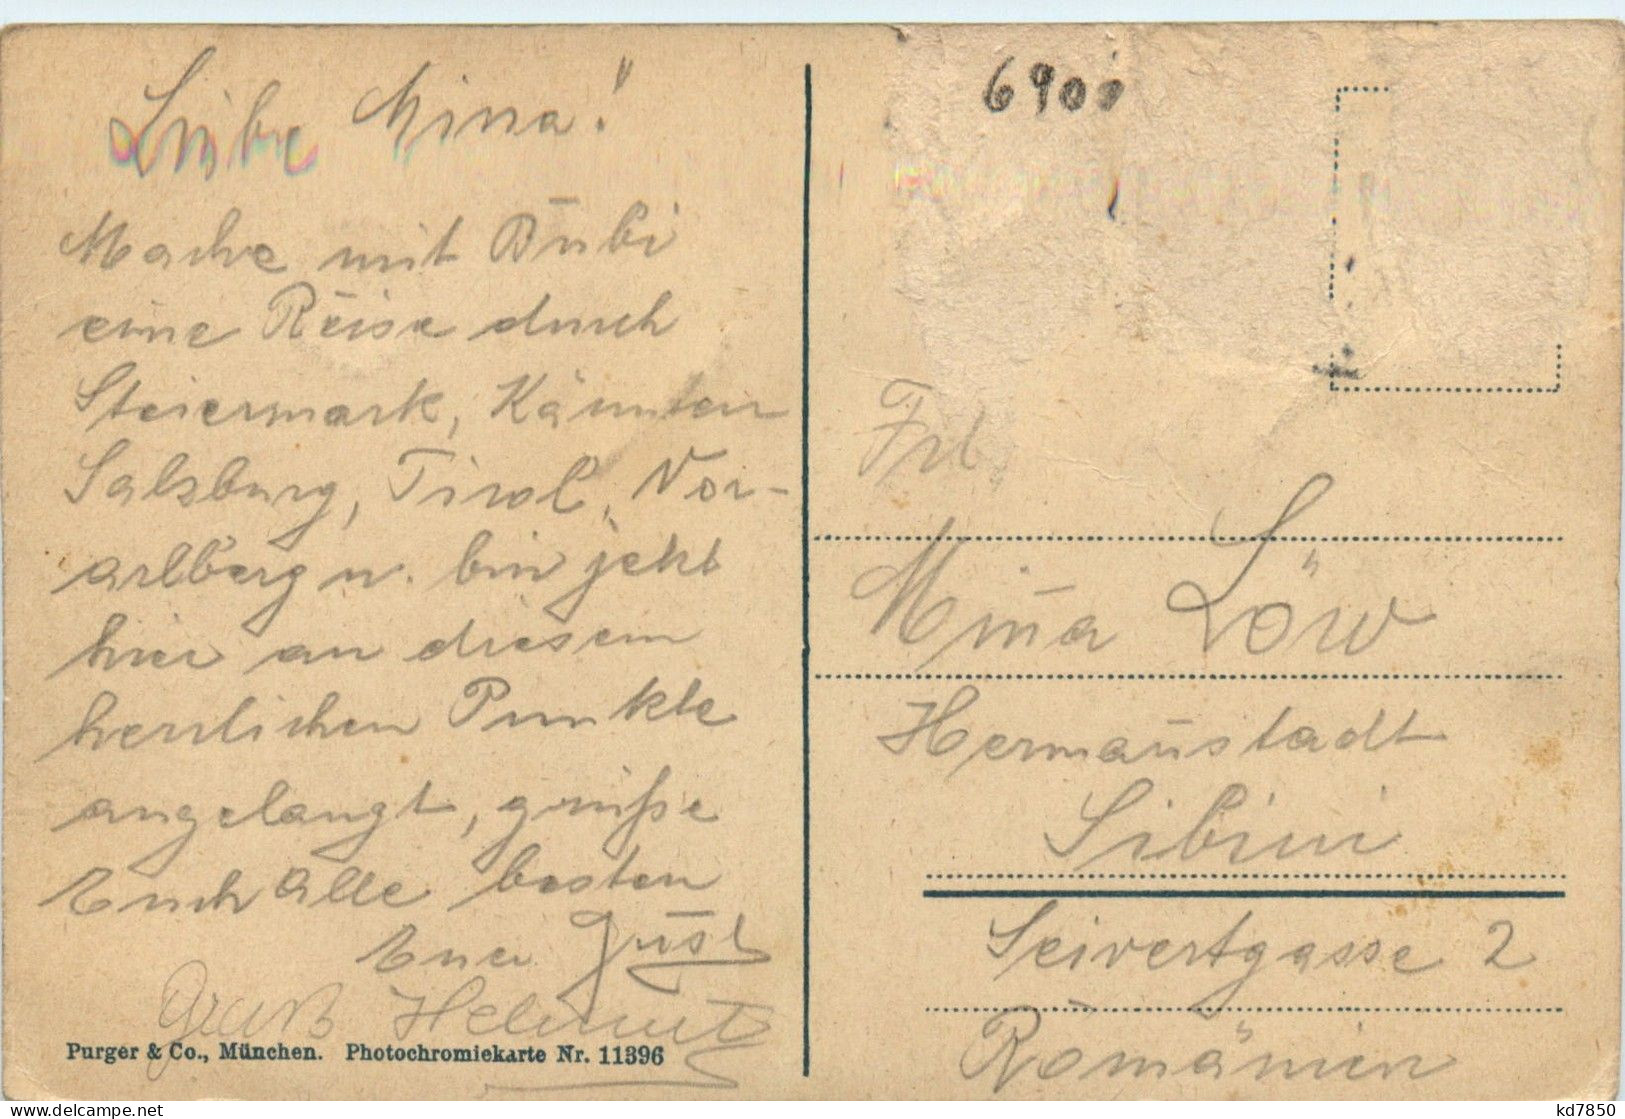 Liebe Mina!
Mache mit Bubi
eine Reise durch
Steiermark, Kärnten
Salzburg, Tirol, Vor-
arlberg u. bin jetzt
hier an diesem
herrlichen Punkte
angelangt, grüße
Euch alle besten
Euer Gustl
Gruß Helmut
Purger & Co., München. Photochromiekarte Nr. 11396
Frl.
Mina Löw
Hermannstadt
Sibiu
Seivertgasse 2
Romänien
kd7850